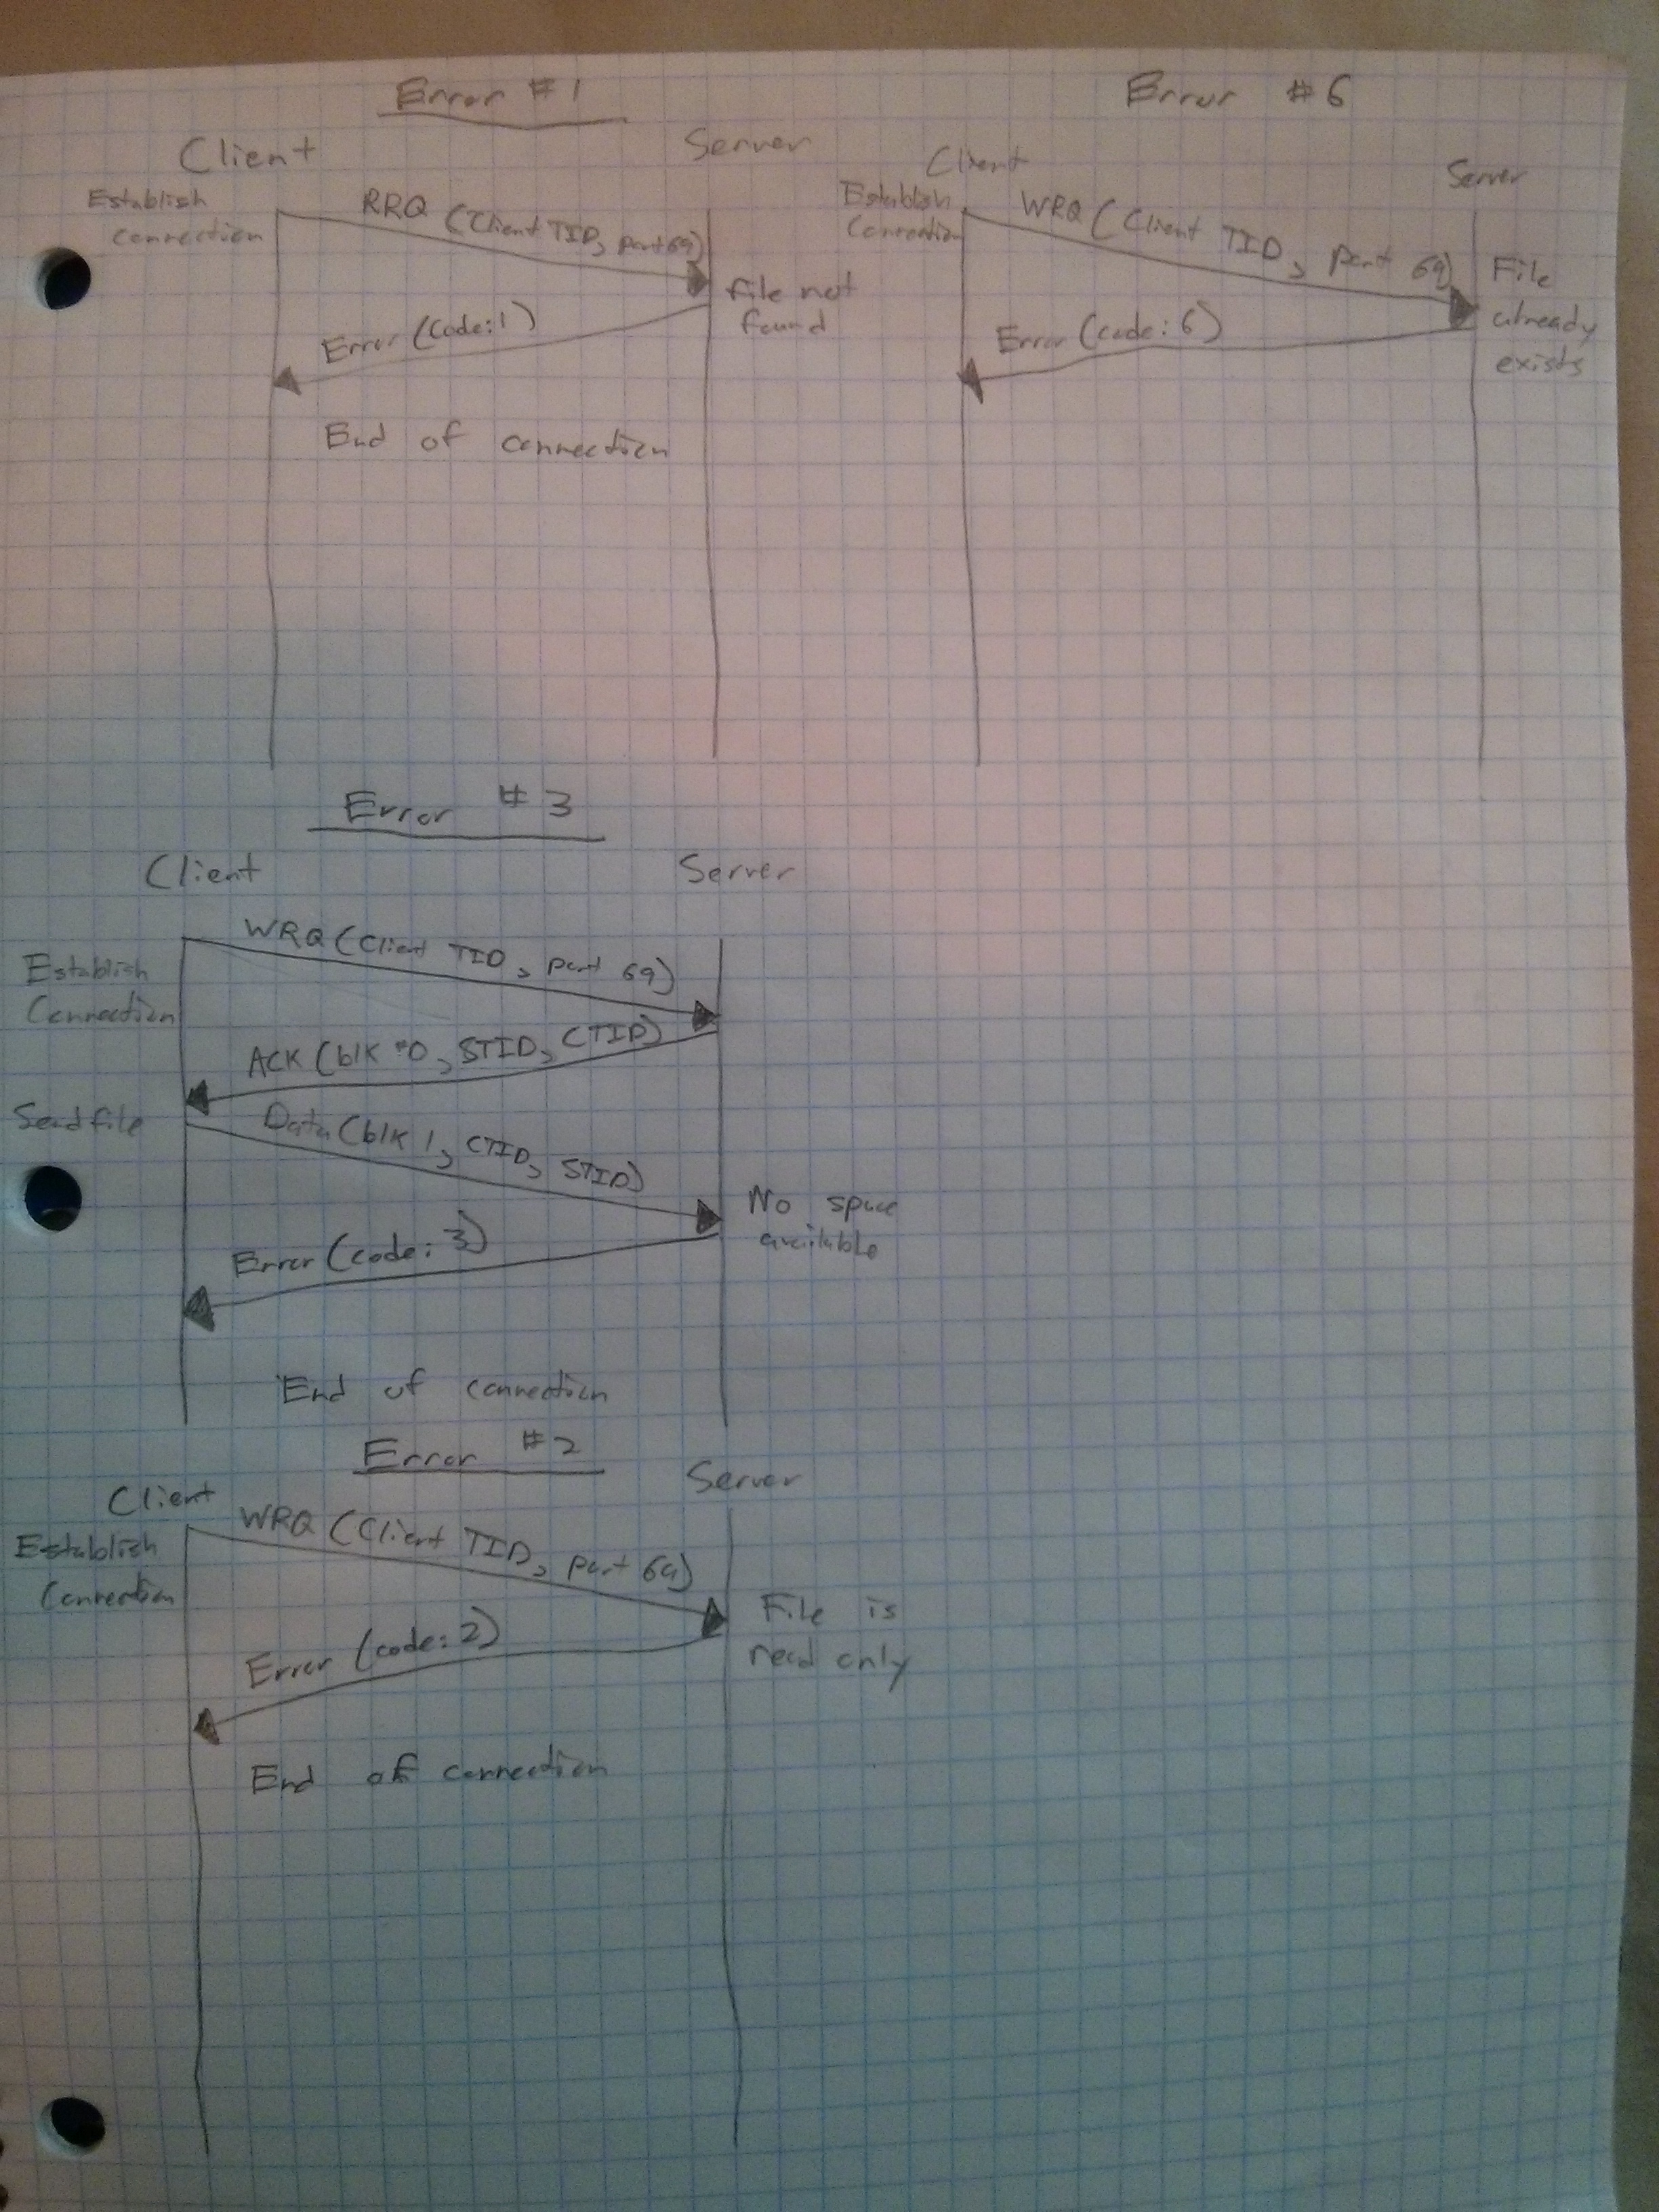 Error #1
Client
Server
Establish
connection
RRQ (Client TID, port 69)
file not
found
Error (code:1)
End of connection
Error #6
Client
Server
Establish
Connection
WRQ (Client TID, port 69)
File
already
exists
Error (code: 6)
Error #3
Client
Server
WRQ (Client TID, port 69)
Establish
Connection
ACK (blk #0, STID, CTID)
Send file
Data (blk 1, CTID, STID)
No space
available
Error (code: 3)
End of connection
Error #2
Client
Server
WRQ (Client TID, port 69)
Establish
Connection
File is
read only
Error (code: 2)
End of connection